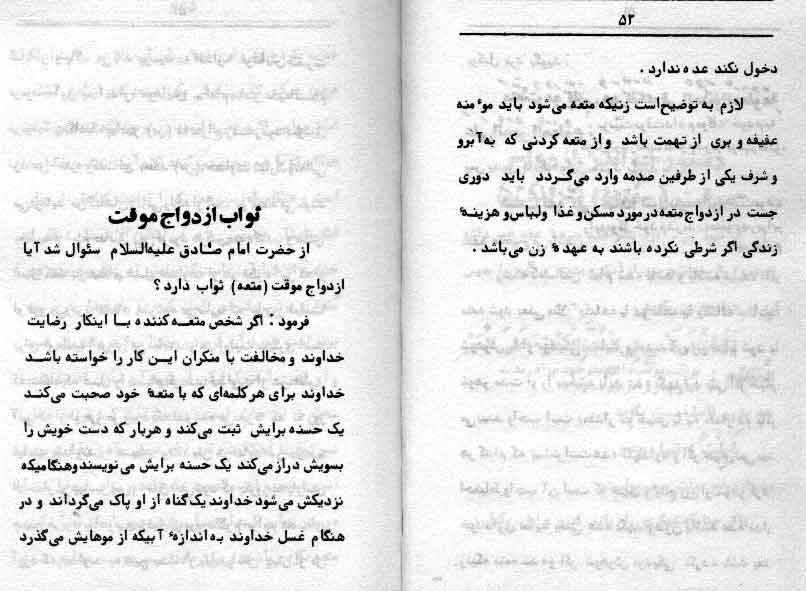 ۵۲
دخول نکند عده ندارد .
لازم به توضیح‌است زنیکه متعه می‌شود باید موٴمنه
عفیفه و بری از تهمت باشد و از متعه کردنی که به‌آبرو
و شرف یکی از طرفین صدمه وارد می‌گردد باید دوری
جست در ازدواج متعه در مورد مسکن و غذا ولباس و هزینهٴ
زندگی اگر شرطی نکرده باشند به عهدهٴ زن می‌باشد .
ثواب ازدواج موقت
از حضرت امام صادق علیه‌السلام سئوال شد آیا
ازدواج موقت (متعه) ثواب دارد؟
فرمود : اگر شخص متعه کننده با اینکار رضایت
خداوند و مخالفت با منکران این کار را خواسته باشد
خداوند برای هر کلمه‌ای که با متعهٴ خود صحبت می‌کند
یک حسنه برایش ثبت می‌کند و هربار که دست خویش را
بسویش دراز می‌کند یک حسنه برایش می‌نویسند و هنگامیکه
نزدیکش می‌شود خداوند یک گناه از او پاک می‌گرداند و در
هنگام غسل خداوند به اندازهٴ آبیکه از موهایش می‌گذرد